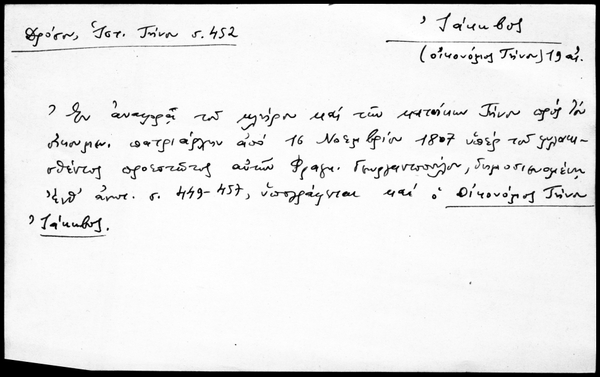 Δρόσου, Ἱστ. Τήνου σ. 452
Ἰάκωβος
(οἰκονόμος Τήνου) 19 αἰ.
Ἐν ἀναφορᾷ τοῦ κλήρου καί τῶν κατοίκων Τήνου πρός τόν
οἰκουμεν. πατριάρχην ἀπό 16 Νοεμβρίου 1807 ὑπέρ τοῦ φυλακι-
σθέντος προεστῶτος αὐτῶν Φραγκ. Γεωργαντοπούλου, δημοσιευομένῃ
ἐνθ' ἀνωτ. σ. 449-457, ὑπογράφεται καί ὁ Οἰκονόμος Τήνου
Ἰάκωβος.